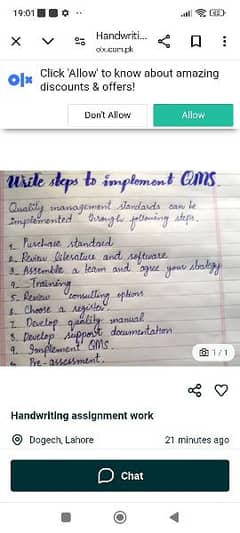 19:01
Handwriti...
olx.com.pk
olx
Click 'Allow' to know about amazing
discounts & offers!
Don't Allow
Allow
Write steps to implement QMS.
Quality management standards can be
Implemented through following steps.
1. Purchase standard
2. Review literature and software
3. Assemble a team and agree your strategy
4. Training
5. Review consulting options
6. Choose a register.
7. Develop quality manual
8. Develop support documentation
9. Implement QMS.
Pre-assessment.
1/1
Handwriting assignment work
Dogech, Lahore
21 minutes ago
Chat